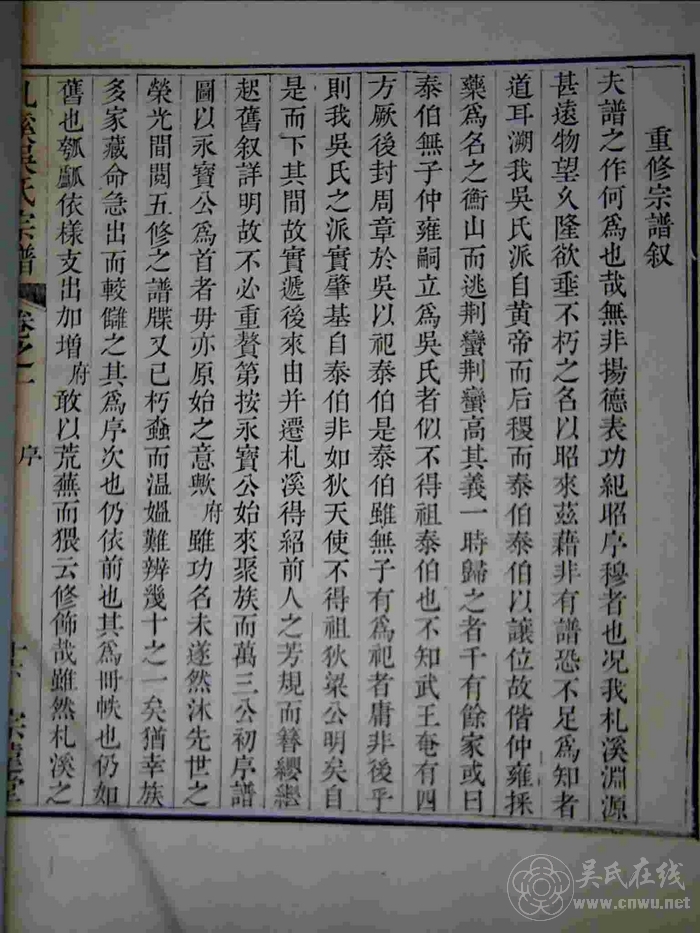 重修宗譜叙
夫譜之作何爲也哉無非揚德表功紀昭序穆者也况我札溪淵源
甚遠物望乆隆欲垂不朽之名以昭來茲藉非有譜恐不足爲知者
道耳溯我吳氏派自黄帝而后稷而泰伯泰伯以讓位故偕仲雍採
藥爲名之衡山而逃荆蠻荆蠻高其義一時歸之者千有餘家或曰
泰伯無子仲雍嗣立爲吳氏者似不得祖泰伯也不知武王奄有四
方厥後封周章於吳以祀泰伯是泰伯雖無子有爲祀者庸非後乎
則我吳氏之派實肇基自泰伯非如狄天使不得祖狄梁公明矣自
是而下其間故實遞後來由并遷札溪得紹前人之芳規而簪纓繼
起舊叙詳明故不必重贅第按永寶公始來聚族而萬三公初序譜
圖以永寶公爲首者毋亦原始之意歟府雖功名未遂然沐先世之
榮光間閲五修之譜牒又已朽蝕而温媪難辨幾十之一矣猶幸族
多家藏命急出而較讎之其爲序次也仍依前也其爲冊帙也仍如
舊也瓠瓤依様支出加增府敢以荒蕪而猥云修飾哉雖然札溪之
札溪吳氏宗譜 卷之一 序
吴氏在线
www.cnwu.net